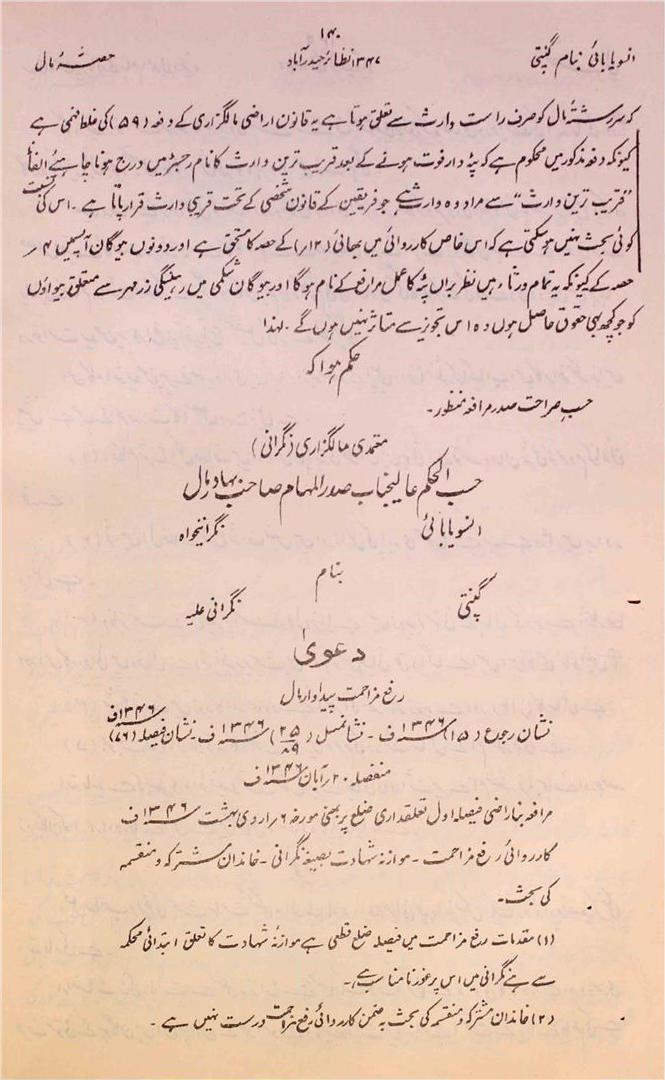 ۱۴۰
انسویابائی بنام گنپتی ۱۳۴۷ نظائر حیدرآباد حصۂ مال
کہ سررشتۂ مال کو صرف راست وارث سے تعلق ہوتا ہے یہ قانون اراضی مالگزاری کے دفعہ (۵۹) کی غلط فہمی ہے
کیونکہ دفعہ مذکور میں محکوم ہے کہ پٹہ دار فوت ہونے کے بعد قریب ترین وارث کا نام رجسٹر میں درج ہونا چاہئے الفاظ
”قریب ترین وارث“ سے مراد وہ وارث ہے جو فریقین کے قانون شخصی کے تحت قریبی وارث قرار پاتا ہے ۔ اس کی نسبت
کوئی بحث نہیں ہوسکتی ہے کہ اس خاص کارروائی میں بھائی (۱۲ر) کے حصہ کا مستحق ہے اور دونوں بیوگان آپسمیں ۴ر
حصہ کے کیونکہ یہ تمام ورثاء ہیں نظر براں پٹہ کا عمل مرافع کے نام ہوگا اور بیوگان شکمی میں رہینگی زر مہر سے متعلق بیواؤں
کو جو کچھ بھی حقوق حاصل ہوں وہ اس تجویز سے متاثر نہیں ہوں گے ۔ لہذا
حکم ہوا کہ
حسب صراحت صدر مرافعہ منظور ۔
معتمدی مالگزاری (نگرانی)
حسب الحکم عالیجناب صدر المہام صاحب بہادر مال
انسویابائی نگرانیخواہ
بنام
گنپتی نگرانی علیہ
دعویٰ
رفع مزاحمت پیداوار مال
نشان رجوع (۱۵) ۱۳۴۶ف ۔ نشانمسل (۲۵/۸۹) ۱۳۴۶ف ۔ نشان فیصلہ (۷۶) ۱۳۴۶ف
منفصلہ ۲۰ر آبان ۱۳۴۶ف
مرافعہ بناراضی فیصلہ اول تعلقداری ضلع پربھنی مورخہ ۶ر اردی بہشت ۱۳۴۶ف
کارروائی رفع مزاحمت ۔ موازنہ شہادت بصیغہ نگرانی ۔ خاندان مشترکہ و منقسمہ
کی بحث ۔
(۱) مقدمات رفع مزاحمت میں فیصلہ ضلع قطعی ہے موازنہ شہادت کا تعلق ابتدائی محکمہ
سے ہے نگرانی میں اس پر غور نامناسب ہے ۔
(۲) خاندان مشترکہ و منقسمہ کی بحث بہ ضمن کارروائی رفع مزاحمت درست نہیں ہے ۔